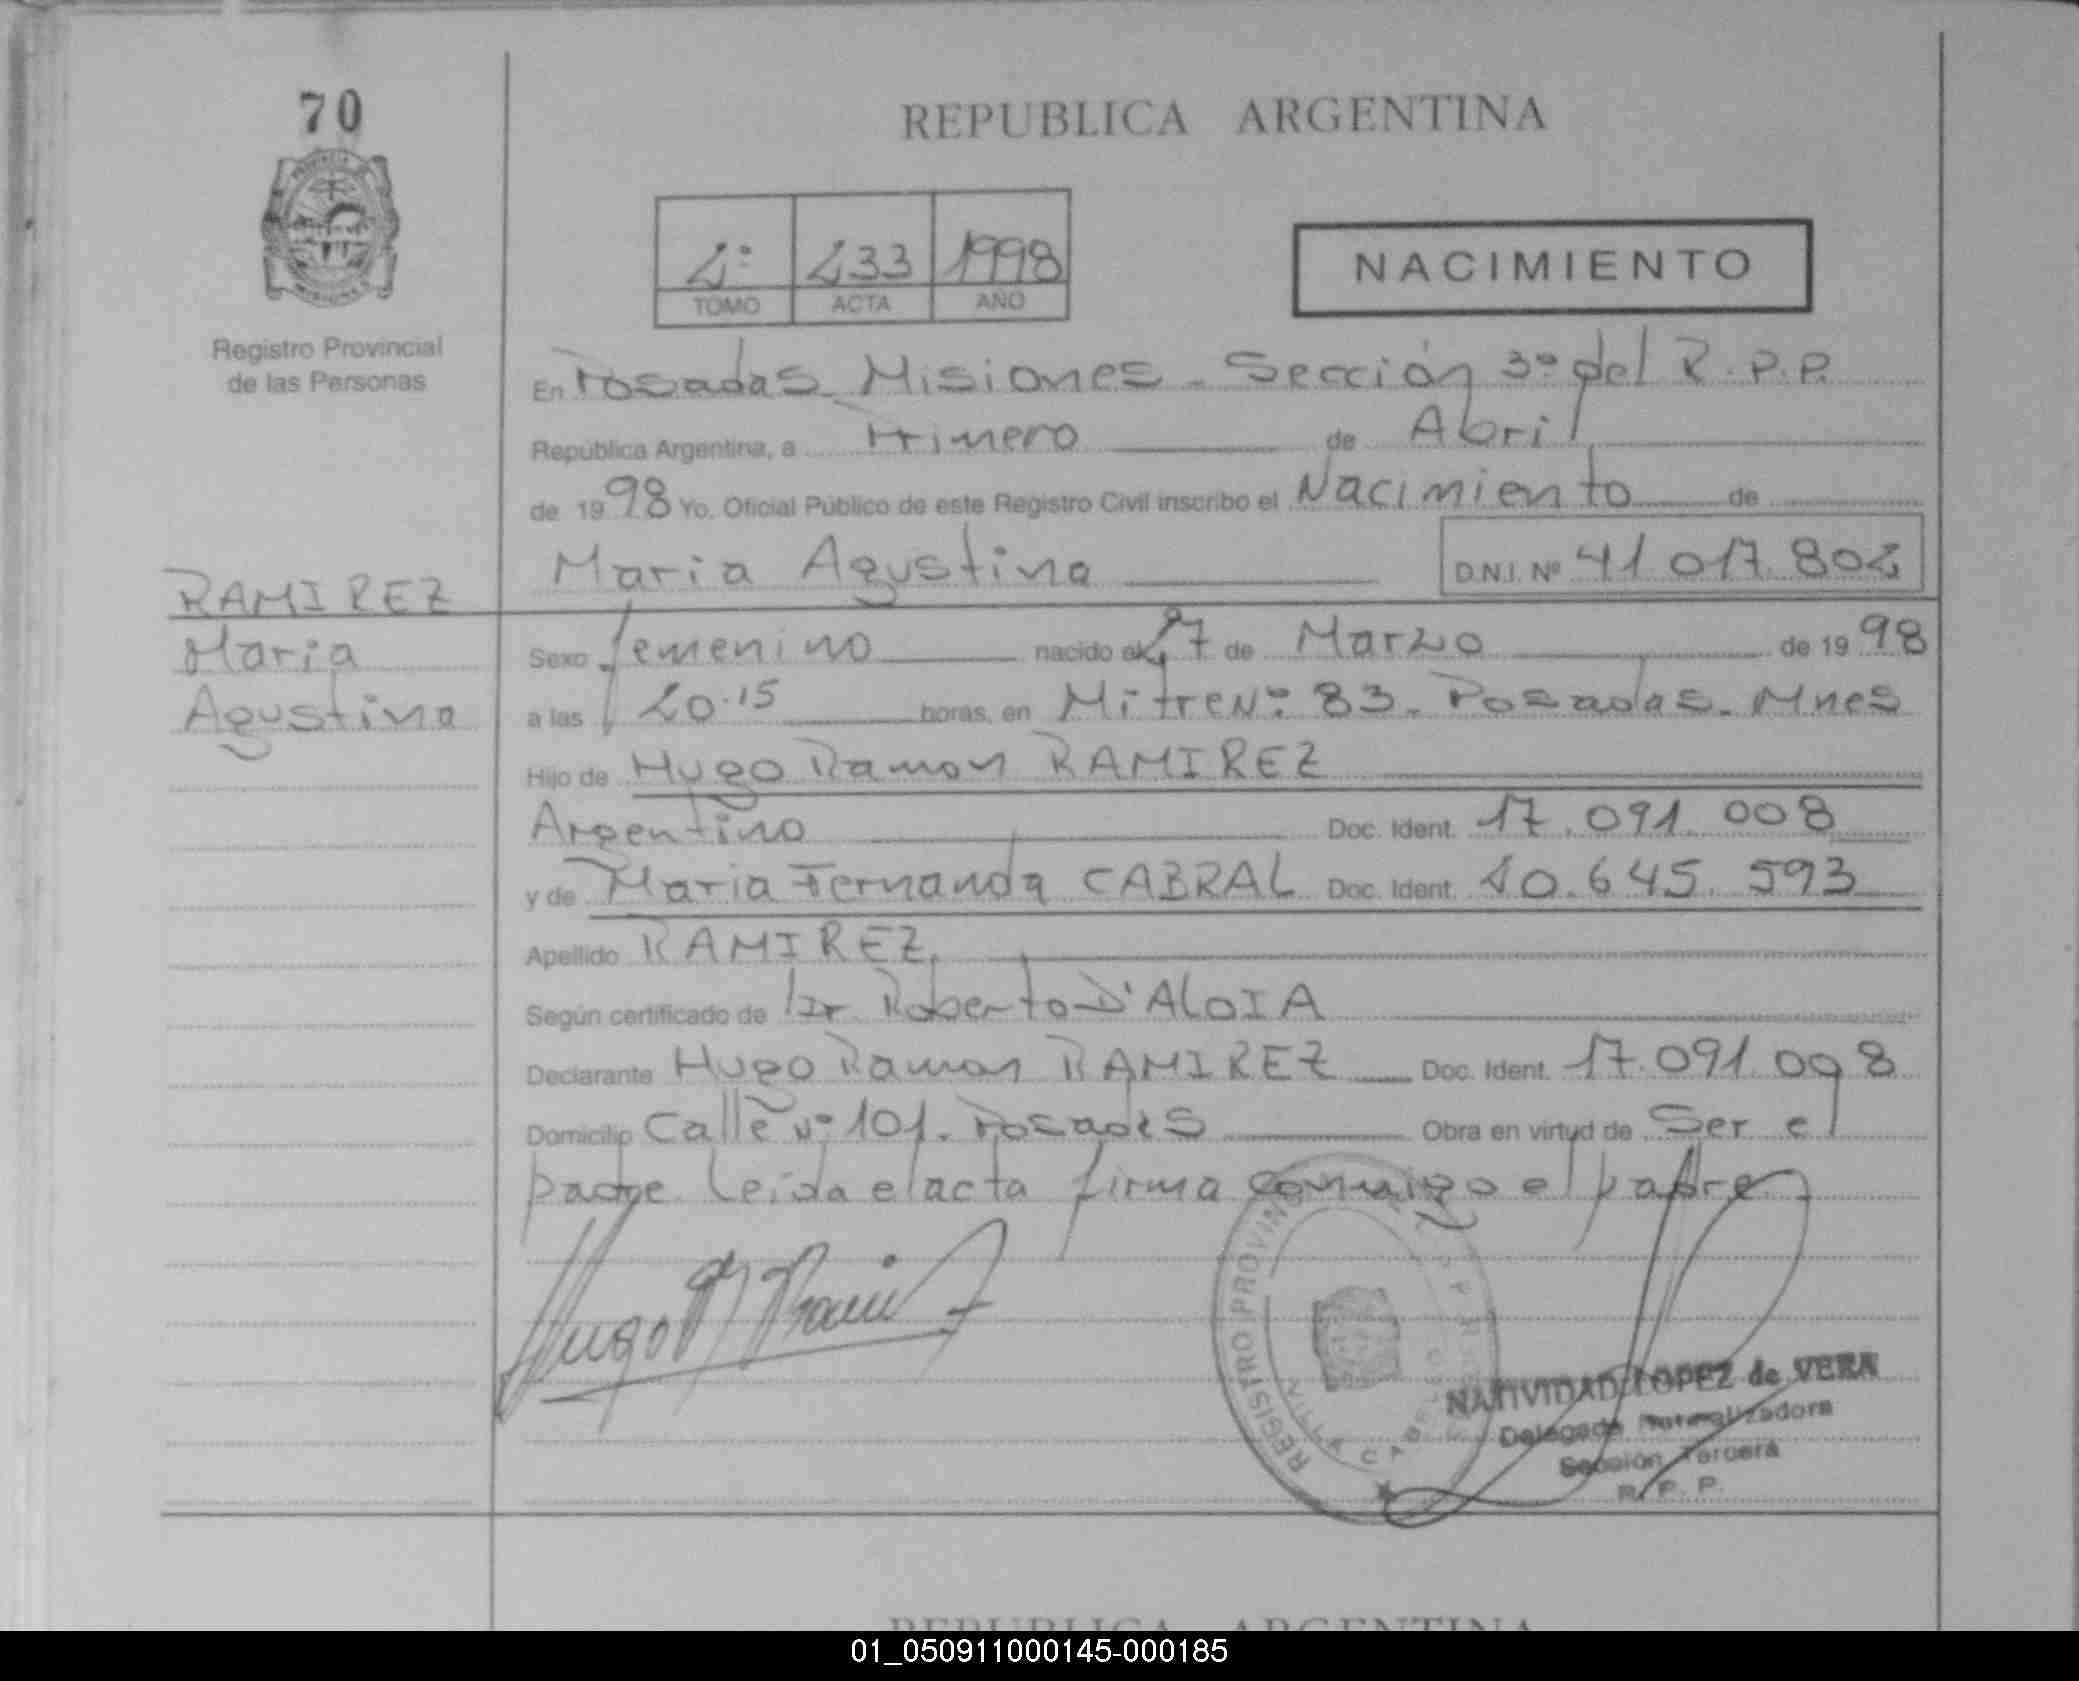 70
REPUBLICA ARGENTINA
2º 233 1998
TOMO ACTA AÑO
NACIMIENTO
Registro Provincial
de las Personas
En Posadas Misiones - Sección 3º del R.P.P.
República Argentina, a Primero de Abril
de 1998 Yo. Oficial Público de este Registro Civil inscribo el Nacimiento de
Maria Agustina D.N.I. Nº 41 017 802
RAMIREZ
Maria
Agustina
Sexo femenino nacido el 27 de Marzo de 1998
a las 20.15 horas, en Mitre Nº 83 - Posadas - Mnes
Hijo de Hugo Ramon RAMIREZ
Argentino Doc. Ident. 17.091.008
y de Maria Fernanda CABRAL Doc. Ident. 20.645.593
Apellido RAMIREZ
Según certificado de Dr. Roberto D'ALOIA
Declarante Hugo Ramon RAMIREZ Doc. Ident. 17.091.008
Domicilio Calle Nº 101 - Posadas Obra en virtud de Ser el
padre Leida el acta firma conmigo el padre
REGISTRO PROVINCIAL
VILLA CABELLO
NATIVIDAD LOPEZ de VERA
Delegada Normalizadora
Sección Tercera
R. P. P.
REPUBLICA ARGENTINA
01_050911000145-000185